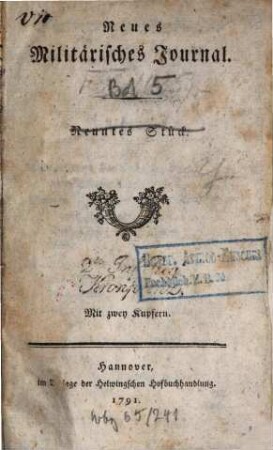 Neues
Militärisches Journal.
Bd 5
Neuntes Stück.
Mit zwey Kupfern.
Hannover,
im Verlage der Helwingschen Hofbuchhandlung.
1791.